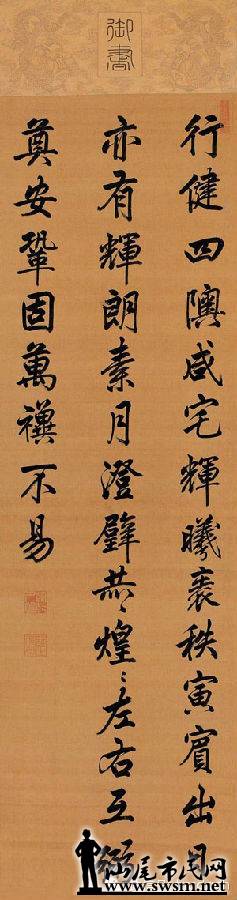 御書
行健四隩咸宅輝曦秩寅賓出日
亦有輝朗素月澄璧煌〻左右互
奠安鞏固萬禩不易
汕尾市民网
www.swsm.net